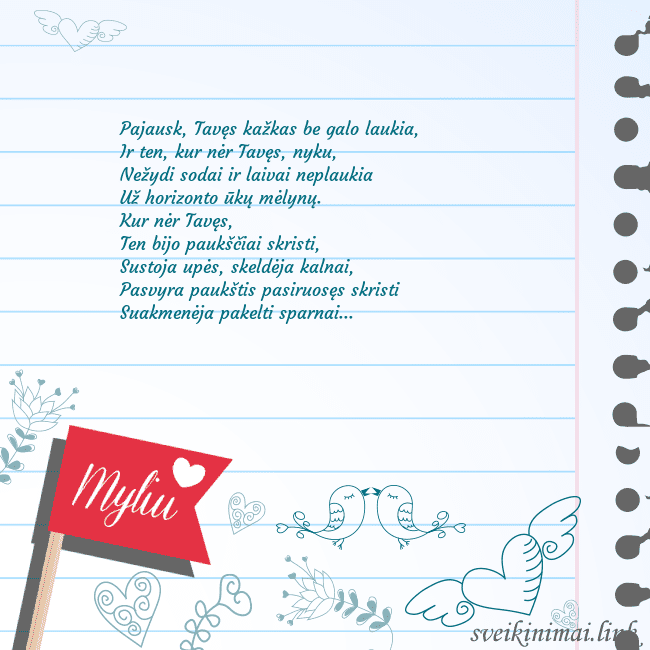 Pajausk, Tavęs kažkas be galo laukia,
Ir ten, kur nėr Tavęs, nyku,
Nežydi sodai ir laivai neplaukia
Už horizonto ūkų mėlynų.
Kur nėr Tavęs,
Ten bijo paukščiai skristi,
Sustoja upės, skeldėja kalnai,
Pasvyra paukštis pasiruosęs skristi
Suakmenėja pakelti sparnai...
Myliu
sveikinimai.link